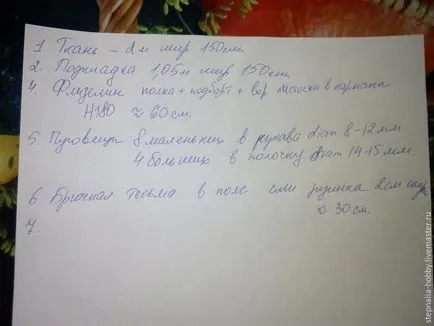 1. Ткань – 2м шир 150см.
2. Подкладка 1,05м шир 150см
4. Флизелин полка + подборт + вор листочки в кармана
H180 ≈ 60см.
5. Пуговицы 8 маленьких в рукава diam 8-12мм
4 больших в полочку diam 14-15мм.
6 Брючная тесьма в пояс или резинка 2см шир
≈ 30см.
7.
stepnalia-hobby.livemaster.ru